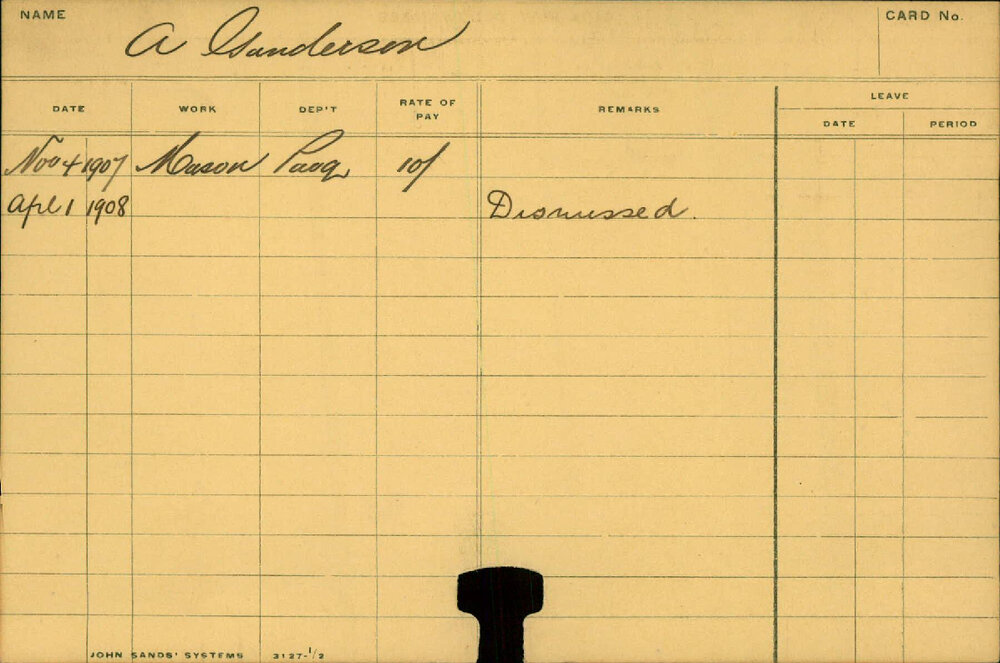 NAME
A Sanderson
CARD No.
DATE WORK DEP'T RATE OF PAY REMARKS LEAVE
DATE PERIOD
Nov 4 1907 Mason 10/
Apl 1 1908 Dismissed.
JOHN SANDS' SYSTEMS 3127-1/2